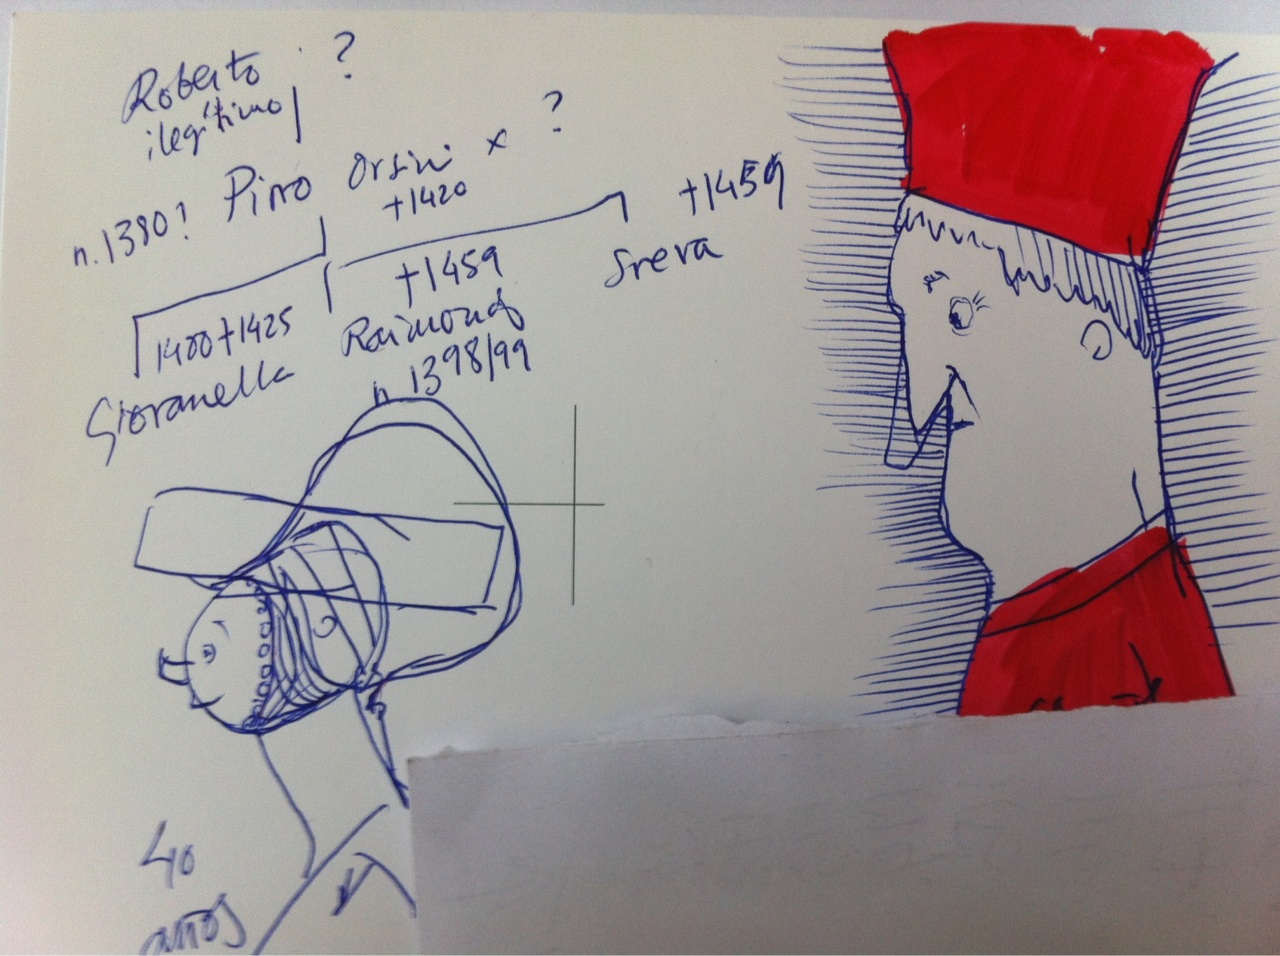 Roberto ?
ilegítimo
n.1380? Pirro Orsini x ?
+1420
+1459
1400+1425
+1459
Sveva
Giovanella
Raimondo
n 1398/99
40
años